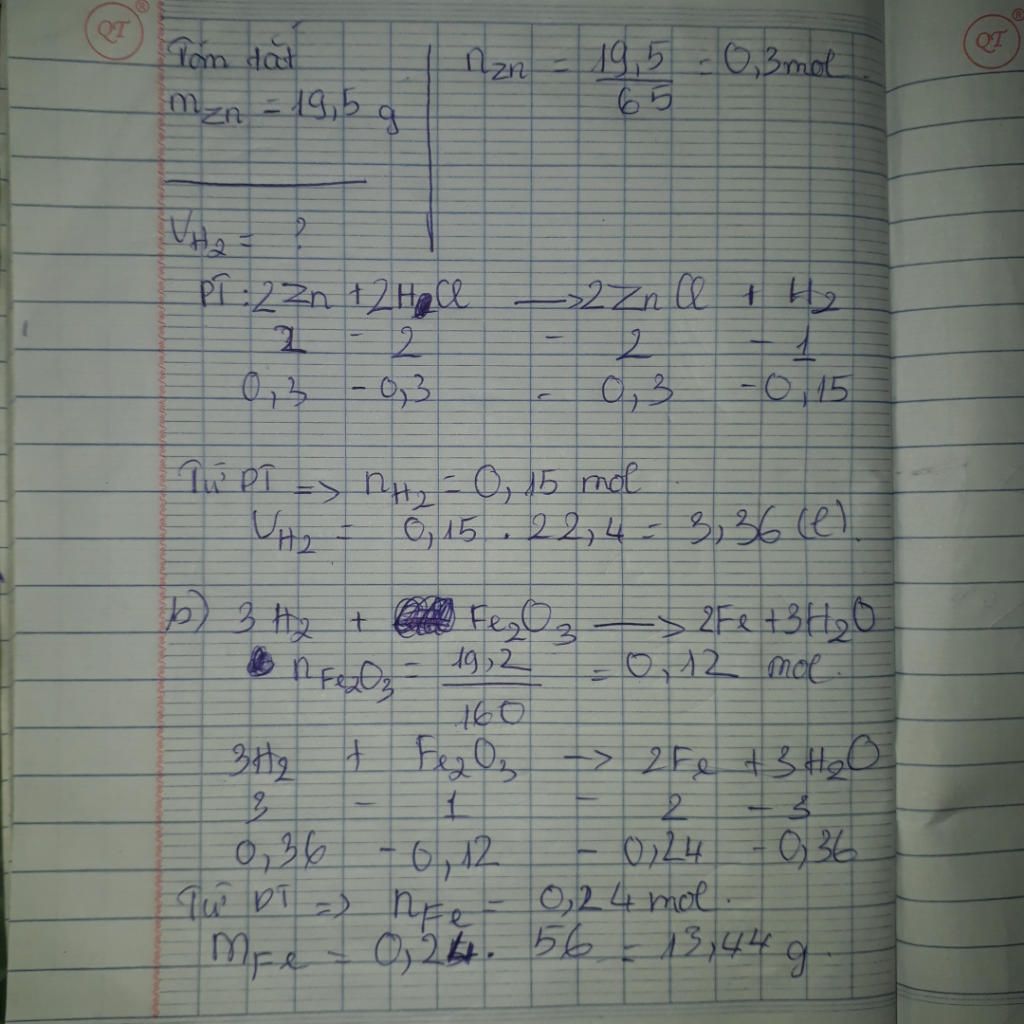 QT ®
QT
Tóm tắt
m Zn = 19,5 g
V H2 = ?
n Zn = 19,5 / 65 = 0,3 mol
PT: 2Zn + 2HCl → 2ZnCl + H2
2 - 2 - 2 - 1
0,3 - 0,3 - 0,3 - 0,15
Từ PT => n H2 = 0,15 mol
V H2 = 0,15 . 22,4 = 3,36 (l).
b) 3H2 + Fe2O3 → 2Fe + 3H2O
n Fe2O3 = 19,2 / 160 = 0,12 mol.
3H2 + Fe2O3 → 2Fe + 3H2O
3 - 1 - 2 - 3
0,36 - 0,12 - 0,24 - 0,36
Từ PT => n Fe = 0,24 mol.
m Fe = 0,24 . 56 = 13,44 g.